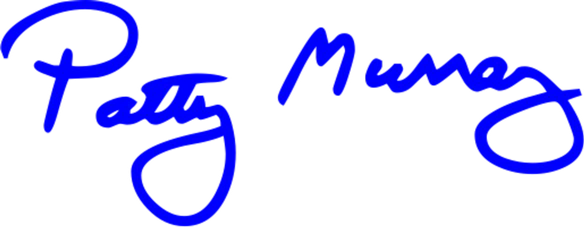 Patty Murray